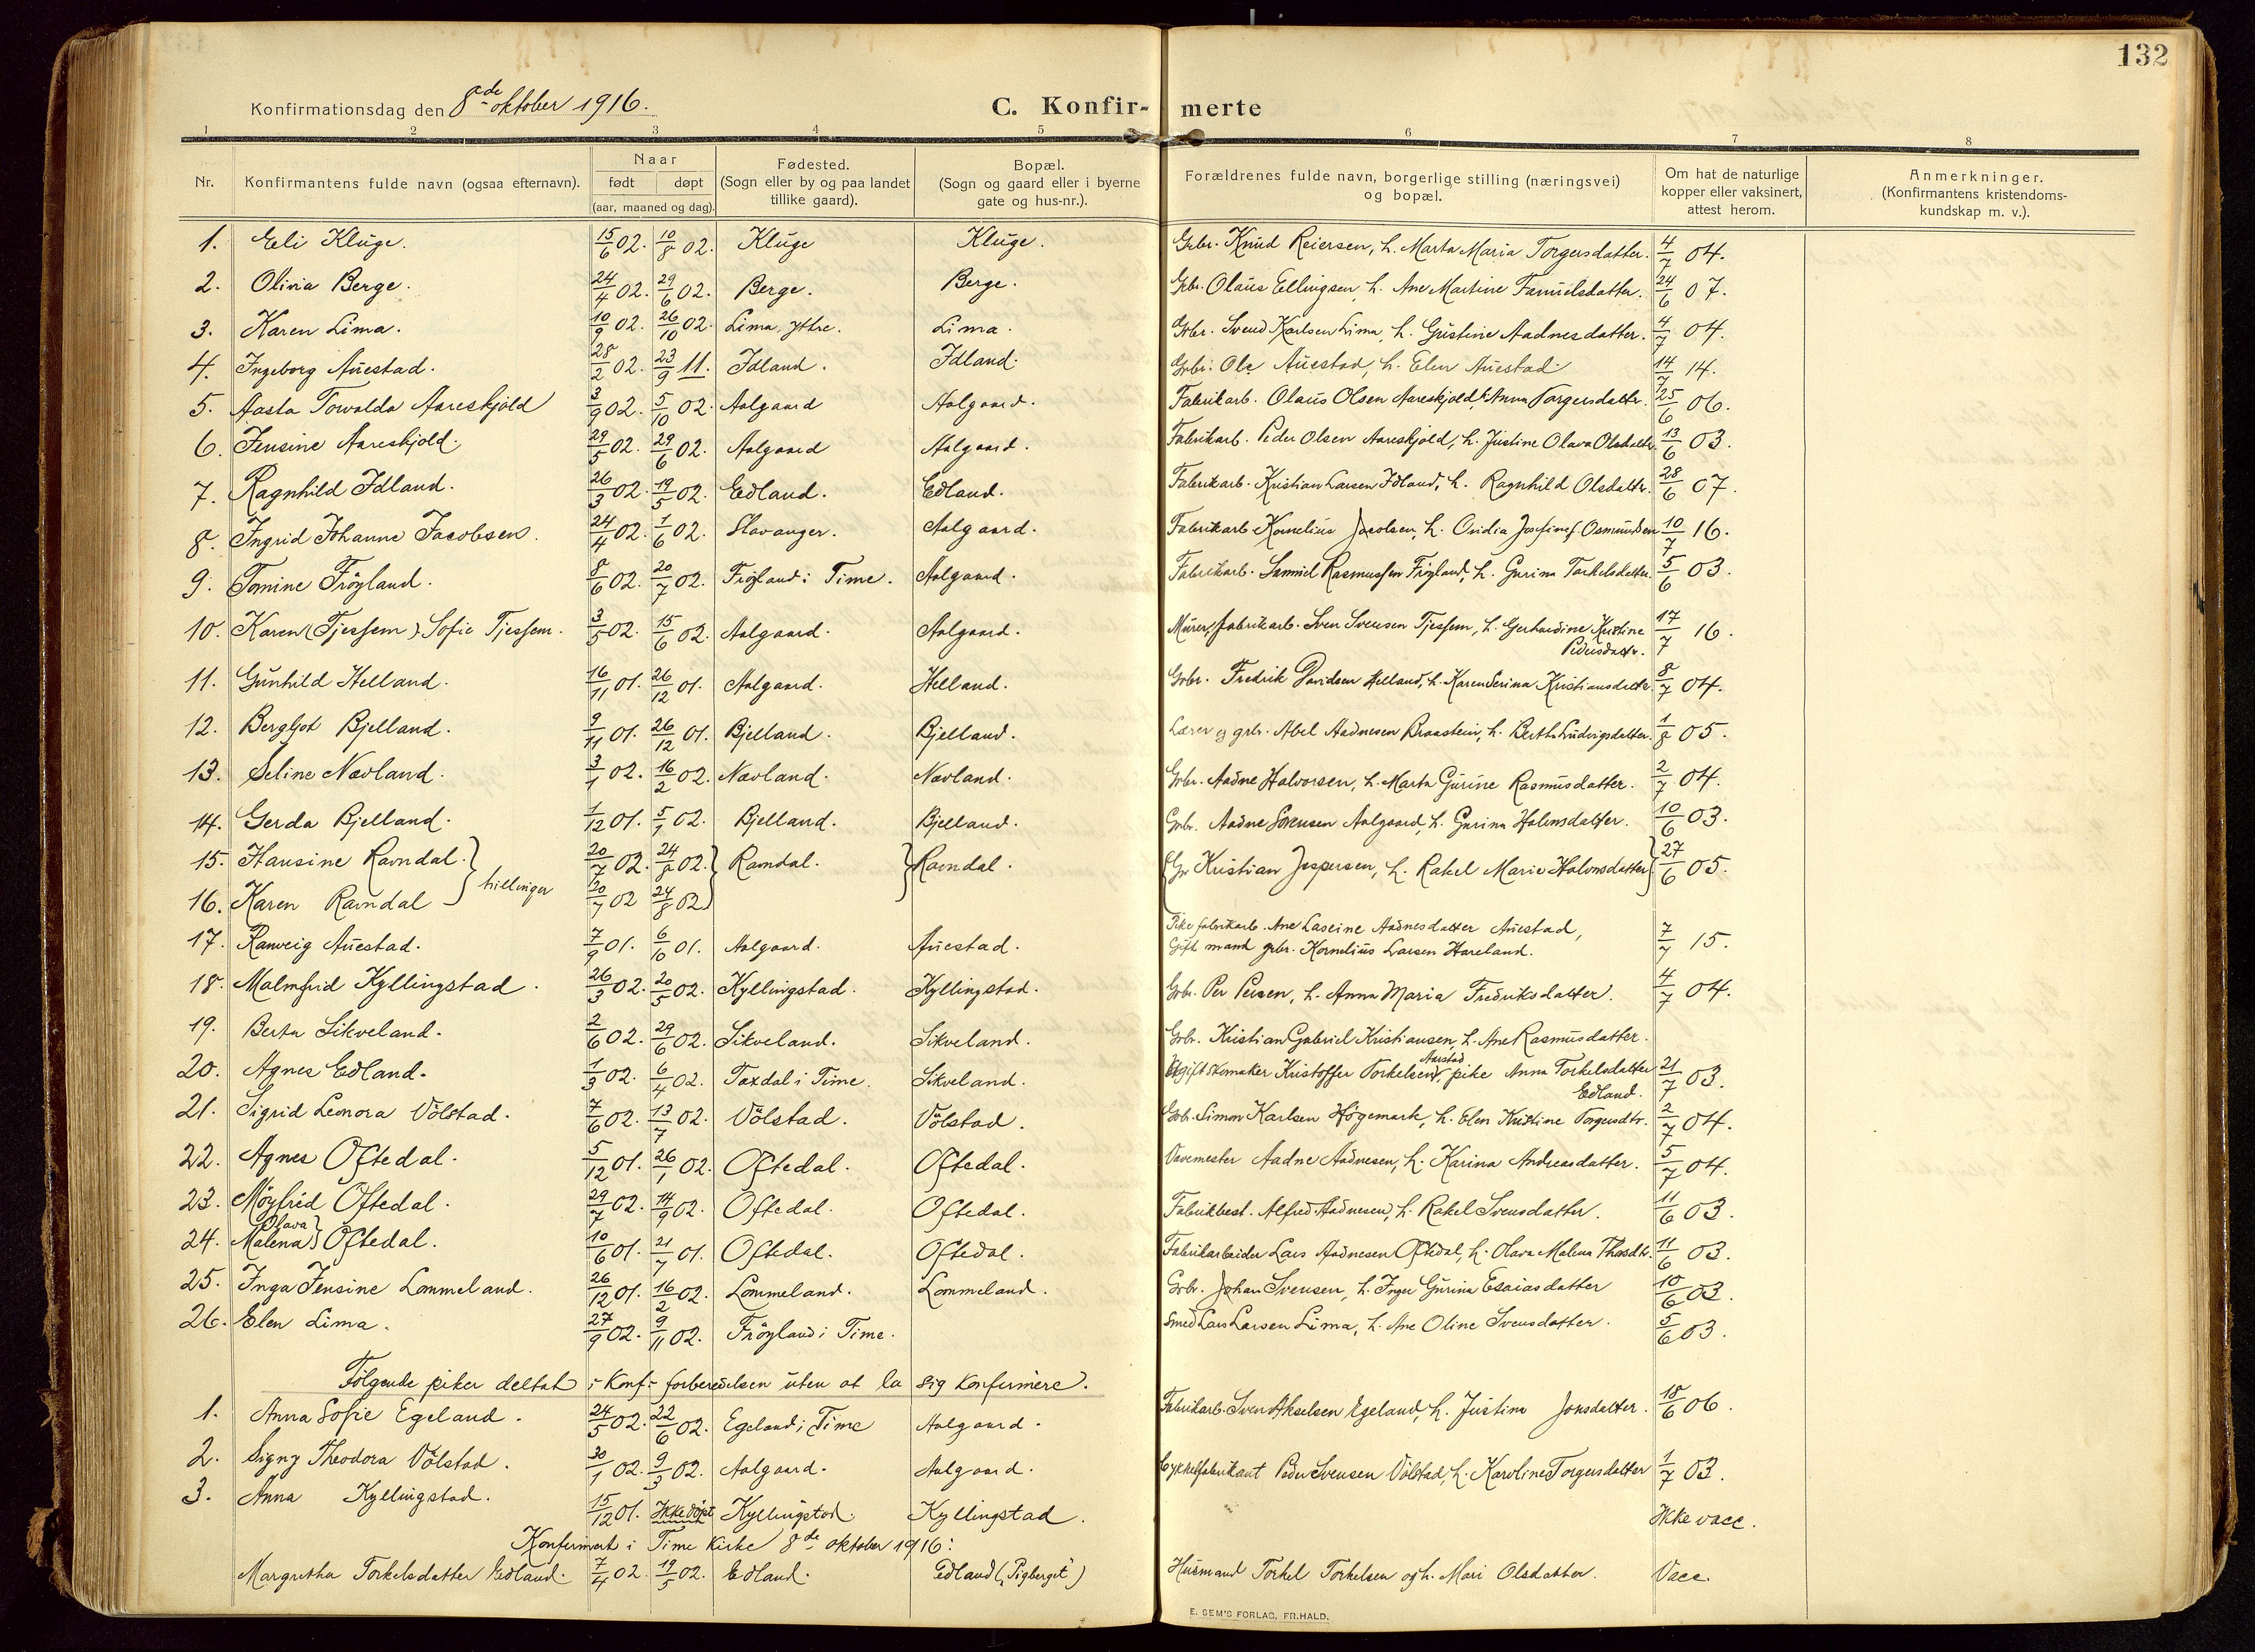 132
Konfirmationsdag den 8de oktober 1916.
C. Konfir- merte
1 2 3 4 5 6 7 8
Nr. Konfirmantens fulde navn (ogsaa efternavn). Naar født døpt (aar, maaned og dag). Fødested. (Sogn eller by og paa landet tillike gaard). Bopæl. (Sogn og gaard eller i byerne gate og hus-nr.). Forældrenes fulde navn, borgerlige stilling (næringsvei) og bopæl. Om hat de naturlige kopper eller vaksinert, attest herom. Anmerkninger. (Konfirmantens kristendomskundskap m. v.).
1. Eli Kluge. 15/6 02. 10/8 02. Kluge Kluge. Grbr. Knud Reiersen, h. Marta Maria Torgersdatter. 4/7 04.
2. Olivia Berge. 24/4 02. 29/6 02. Berge. Berge. Grbr. Olaus Ellingsen, h. Ane Martine Samuelsdatter. 24/6 07.
3. Karen Lima. 10/9 02. 26/10 02. Lima, yttre. Lima. Grbr. Svend Karlsen Lima, h. Gustine Aadnesdatter. 4/7 04.
4. Ingeborg Auestad. 28/2 02. 23/9 11. Idland. Idland. Grbr. Ole Auestad, h. Elen Auestad. 14/7 14.
5. Aasta Torvalda Aareskjold 3/9 02. 5/10 02. Aalgaard Aalgaard. Fabrikarb. Olaus Olsen Aareskjold, h. Anna Torgersdatter. 25/6 06.
6. Jensine Aareskjold. 29/5 02. 29/6 02. Aalgaard Aalgaard. Fabrikarb. Peder Olsen Aareskjold, h. Justine Olava Olsdatter. 13/6 03.
7. Ragnhild Idland. 26/3 02. 19/5 02. Edland. Edland. Fabrikarb. Kristian Larsen Idland, h. Ragnhild Olsdatter. 28/6 07.
8. Ingrid Johanne Jacobsen. 24/4 02. 1/6 02. Stavanger. Aalgaard. Fabrikarb. Kornelius Jacobsen, h. Ovidia Josefine f. Osmundsen 10/7 16.
9. Tomine Fröyland. 8/6 02. 20/7 02. Fröyland i Time. Aalgaard. Fabrikarb. Samuel Rasmussen Fröyland, h. Gurina Torkelsdatter. 5/6 03.
10. Karen (Tjessem) Sofie Tjessem. 3/5 02. 15/6 02. Aalgaard. Aalgaard. Murer, fabrikarb. Sven Svensen Tjessem, h. Gerhardine Kristine Pedersdatter. 17/7 16.
11. Gunhild Helland. 16/11 01. 26/12 01. Aalgaard. Helland. Grbr. Fredrik Davidsen Helland, h. Karen Serina Kristiansdatter. 8/7 04.
12. Bergljot Bjelland. 9/11 01. 26/12 01. Bjelland. Bjelland. Lærer og grbr. Abel Aadnesen Braastein, h. Berth Ludvigsdatter. 1/8 05.
13. Seline Nævland. 3/1 02. 16/2 02. Nævland. Nævland. Grbr. Aadne Halvorsen, h. Marta Gurine Rasmusdatter. 2/7 04.
14. Gerda Bjelland. 1/12 01. 5/1 02. Bjelland. Bjelland. Grbr. Aadne Sörensen Aalgaard, h. Gurina Halvorsdatter. 10/6 03.
15. Hansine Ravndal. 20/7 02. 24/8 02. Ravndal. Ravndal. Gbr. Kristian Jespersen, h. Rakel Marie Halvorsdatter 27/6 05.
tvillinger
16. Karen Ravndal 20/7 02 24/8 02
17. Ranveig Auestad. 7/9 01. 6/10 01. Aalgaard. Auestad. Pike fabrikarb. Ane Laseine Aadnesdatter Auestad, Gift mand grbr. Kornelius Larsen Haveland. 7/7 15.
18. Malmfrid Kyllingstad. 26/3 02. 20/5 02. Kyllingstad. Kyllingstad. Grbr. Per Persen, h. Anna Maria Fredriksdatter. 4/7 04.
19. Berta Sikveland. 2/6 02. 29/6 02. Sikveland. Sikveland. Grbr. Kristian Gabriel Kristiansen, h. Ane Rasmusdatter.
20. Agnes Edland. 1/3 02. 6/4 02. Taxdal i Time. Sikveland. Ugift skomaker Kristoffer Torkelsen Aarstad, pike Anna Torkelsdatter Edland. 21/7 03.
21. Sigrid Leonora Völstad. 7/6 02. 13/7 02. Völstad. Völstad. Grbr. Simon Karlsen Högemark, h. Elen Kristine Torgersdtr. 2/7 04.
22. Agnes Oftedal. 5/12 01. 26/1 02. Oftedal. Oftedal. Vævemester Aadne Aadnesen, h. Karina Andreasdatter. 5/7 04.
23. Möyfrid Oftedal. 29/7 02. 14/9 02. Oftedal. Oftedal. Fabrikbest. Alfred Aadnesen, h. Rakel Svensdatter. 11/6 03.
24. Olava Malena Oftedal. 10/6 01. 21/7 01. Oftedal. Oftedal. Fabrikarbeider Lars Aadnesen Oftedal, h. Olava Malena Thorsdtr. 11/6 03.
25. Inga Jensine Lommeland. 26/12 01. 16/2 02. Lommeland. Lommeland. Grbr. Johan Svensen, h. Inger Gurina Esaiasdatter 10/6 03.
26. Elen Lima. 27/9 02. 9/11 02. Fröyland i Time. Smed Lars Larsen Lima, h. Ane Oline Svensdatter. 5/6 03.
Fölgende piker deltok i Konf.-forberedelsen uten at la sig konfirmere.
1. Anna Sofie Egeland. 24/5 02. 22/6 02. Egeland i Time Aalgaard. Fabrikarb. Sven Akselsen Egeland, h. Justina Jonsdatter. 18/6 06.
2. Signy Theodora Völstad. 30/1 02. 9/3 02. Aalgaard. Aalgaard. Cykkelfabrikant Peder Svensen Völstad, h. Karoline Torgersdatter 1/7 03.
3. Anna Kyllingstad. 15/12 01. Ikke döpt Kyllingstad. Kyllingstad. Ikke vacc.
Konfirmert i Time Kirke 8de oktober 1916:
Margretha Torkelsdatter Edland. 7/4 02. 19/5 02. Edland. Edland ("Pigberget") Husmand Torkel Torkelsen og h. Mari Olsdatter. Vacc.
E. SEM'S FORLAG, FR.HALD.